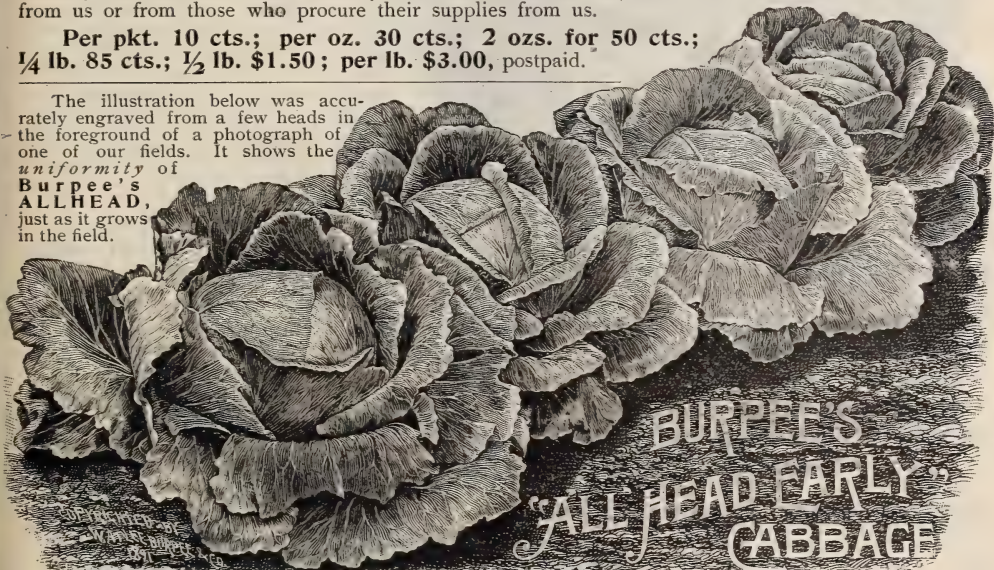 from us or from those who procure their supplies from us.
Per pkt. 10 cts.; per oz. 30 cts.; 2 ozs. for 50 cts.;
¼ lb. 85 cts.; ½ lb. $1.50; per lb. $3.00, postpaid.
The illustration below was accu-
rately engraved from a few heads in
the foreground of a photograph of
one of our fields. It shows the
uniformity of
Burpee's
ALLHEAD,
just as it grows
in the field.
BURPEE'S
"ALL HEAD EARLY"
CABBAGE
COPYRIGHTED BY
W. ATLEE BURPEE & CO.
1891